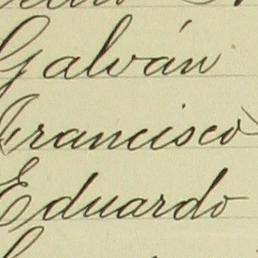 Galván
Francisco
Eduardo